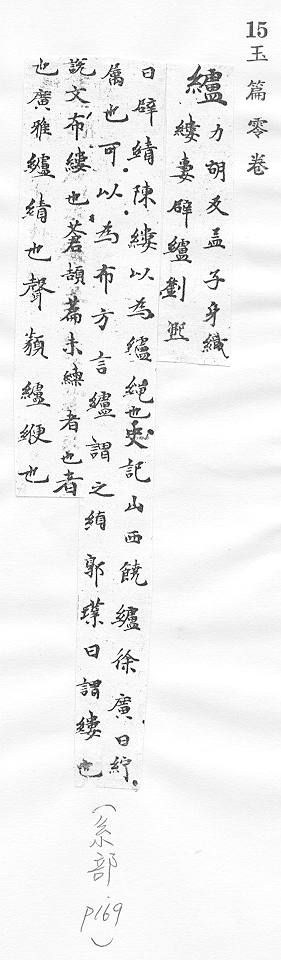 15玉篇零卷
纑力胡反孟子身織
縷妻辟纑劉熙
曰辟績陳縷以為纑縄也史記山西饒纑徐廣曰紵
属也可以為布方言纑謂之縝郭璞曰謂縷也
說文布縷也蒼頡篇未練者也者
也廣雅纑績也聲類纑綆也
(糸部
p169)